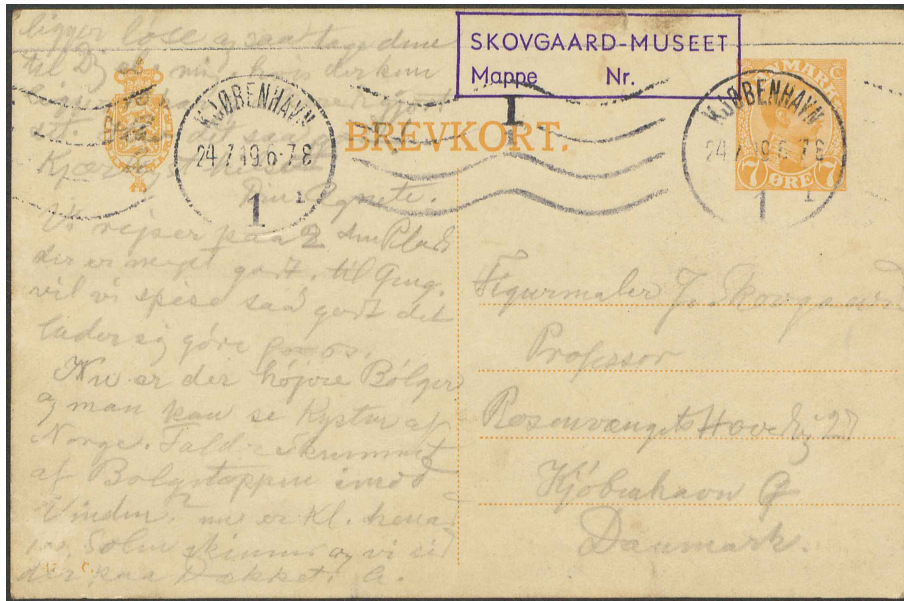 SKOVGAARD-MUSEET
Mappe Nr.
DANMARK
KJØBENHAVN
24 7 19 6-7 E
1 1
KJØBENHAVN
24 7 19 6-7 E
1 1
BREVKORT.
7 ØRE 7
ligger løse og saa tage dem
til Dig
Kjærligst hilsen
Din Agnete.
Vi rejser paa 2 den Plads
der er meget godt, til Geng.
vil vi spise saa godt det
lader sig göre
Nu er der höjere Bölger
og man kan se Kysten af
Norge. Falder Skummet
af Bolgetoppen imod
Vinden? nu er Kl. henad
Solen skinner og vi sid
der paa Dækket. A.
Figurmaler J. Skovgaard
Professor
Rosenvængets Hovedvej 27
Kjöbenhavn Ø
Danmark.